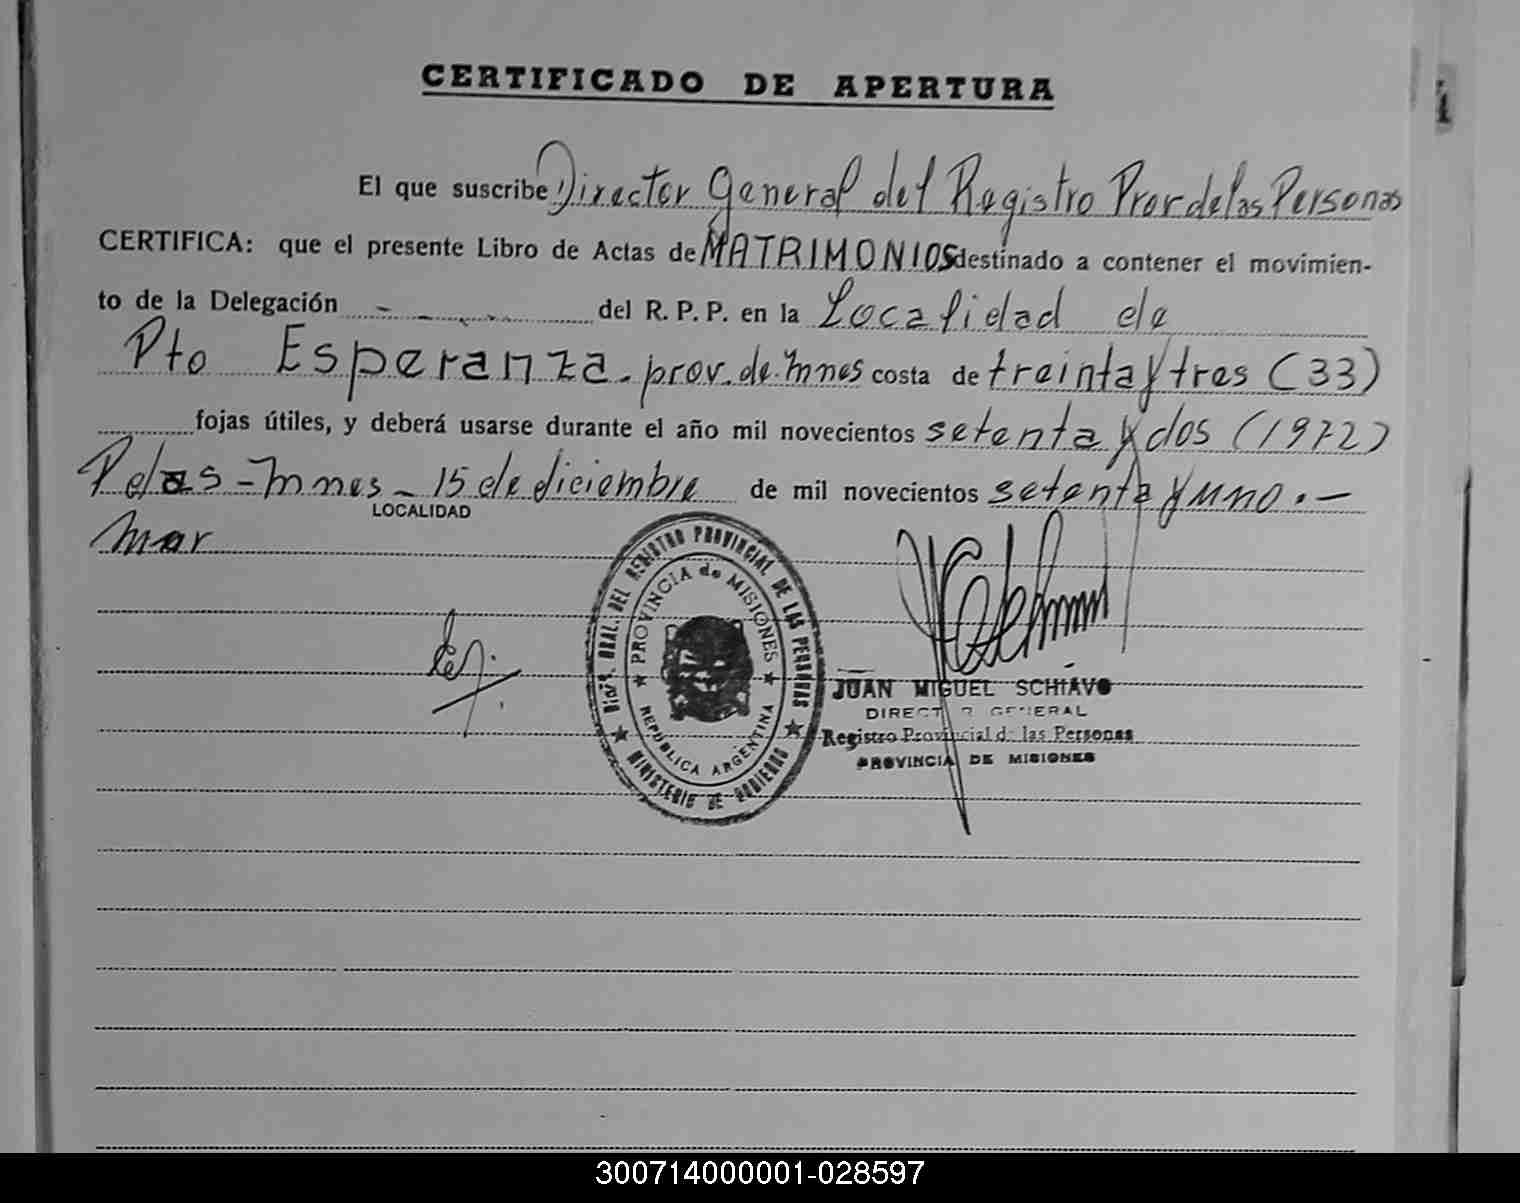 CERTIFICADO DE APERTURA
El que suscribe Director General del Registro Prov de las Personas
CERTIFICA: que el presente Libro de Actas de MATRIMONIOS destinado a contener el movimien-
to de la Delegación del R. P. P. en la Localidad de
Pto Esperanza. prov. de. Mnes costa de treinta y tres (33)
fojas útiles, y deberá usarse durante el año mil novecientos setenta y dos (1972)
Pdas - Mnes - 15 de diciembre de mil novecientos setenta y uno . -
LOCALIDAD
mar
DIRE. GRAL. DEL REGISTRO PROVINCIAL DE LAS PERSONAS
PROVINCIA de MISIONES
REPUBLICA ARGENTINA
MINISTERIO DE GOBIERNO
JUAN MIGUEL SCHIAVO
DIRECTOR GENERAL
Registro Provincial de las Personas
PROVINCIA DE MISIONES
300714000001-028597